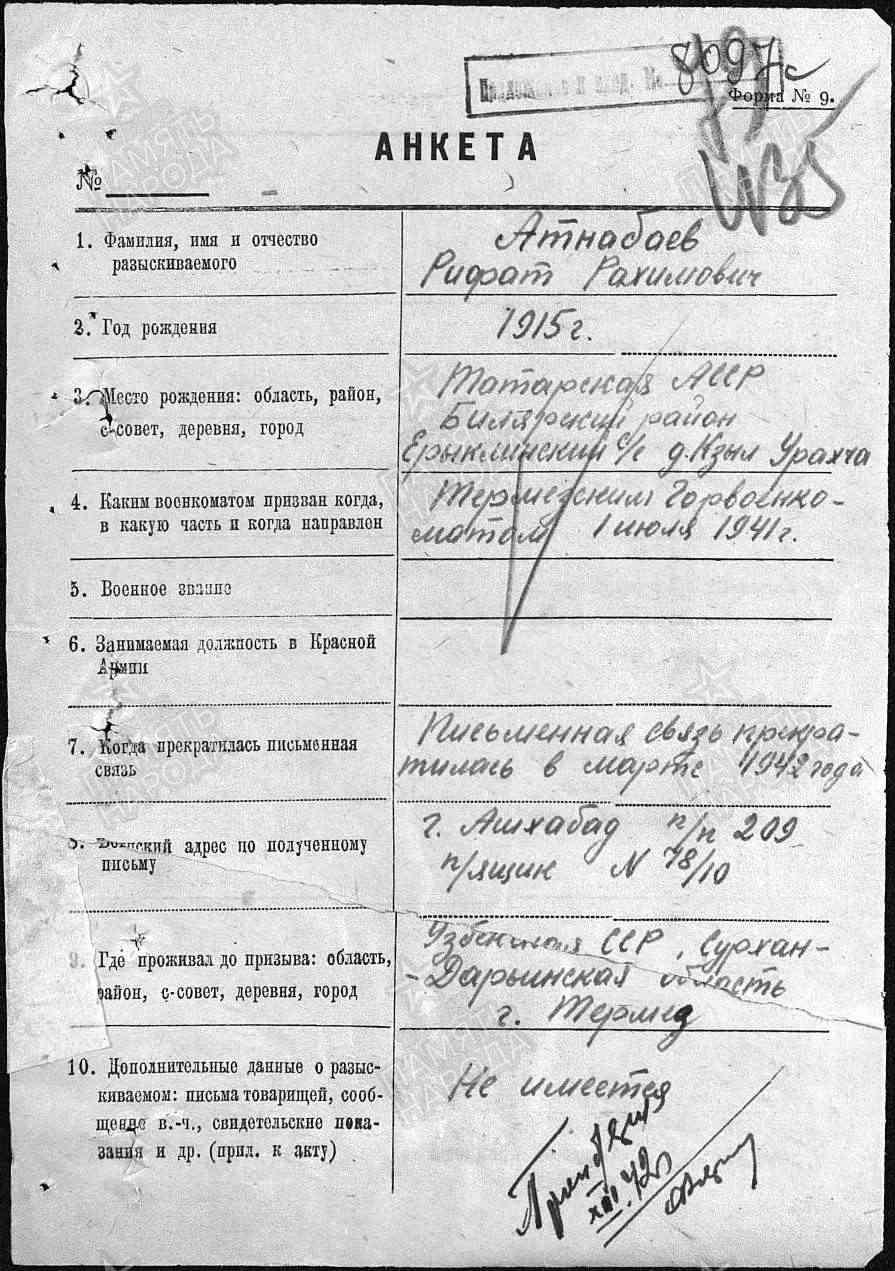 8097с
Форма № 9.
АНКЕТА
№
1. Фамилия, имя и отчество
разыскиваемого
Атнабаев
Рифат Рахимович
2. Год рождения
1915 г.
3. Место рождения: область, район,
с-совет, деревня, город
Татарская АССР
Билярский район
Ерыклинский с/с д. Кзыл Урахча
4. Каким военкоматом призван когда,
в какую часть и когда направлен
Термезским Горвоенко-
матом 1 июля 1941 г.
5. Военное звание
6. Занимаемая должность в Красной
Армии
7. Когда прекратилась письменная
связь
Письменная связь прекра-
тилась в марте 1942 года
8. Воинский адрес по полученному
письму
г. Ашхабад п/п 209
п/ящик N 78/10
9. Где проживал до призыва: область,
район, с-совет, деревня, город
Узбекская ССР, Сурхан-
-Дарьинская область
г. Термез
10. Дополнительные данные о разыс-
киваемом: письма товарищей, сооб-
щение в.-ч., свидетельские пока-
зания и др. (прил. к акту)
Не имеется
ПАМЯТЬ
НАРОДА